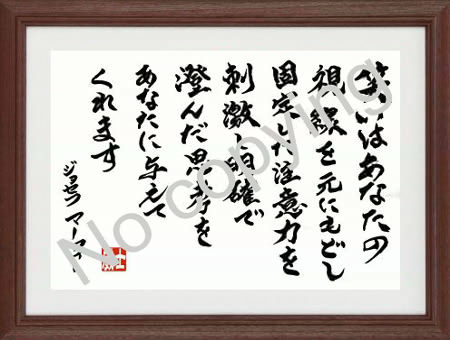 笑いはあなたの
視線を元にもどし
固定した注意力を
刺激し明確で
澄んだ思考を
あなたに与えて
くれます
ジョセフ マーフィー
No copying